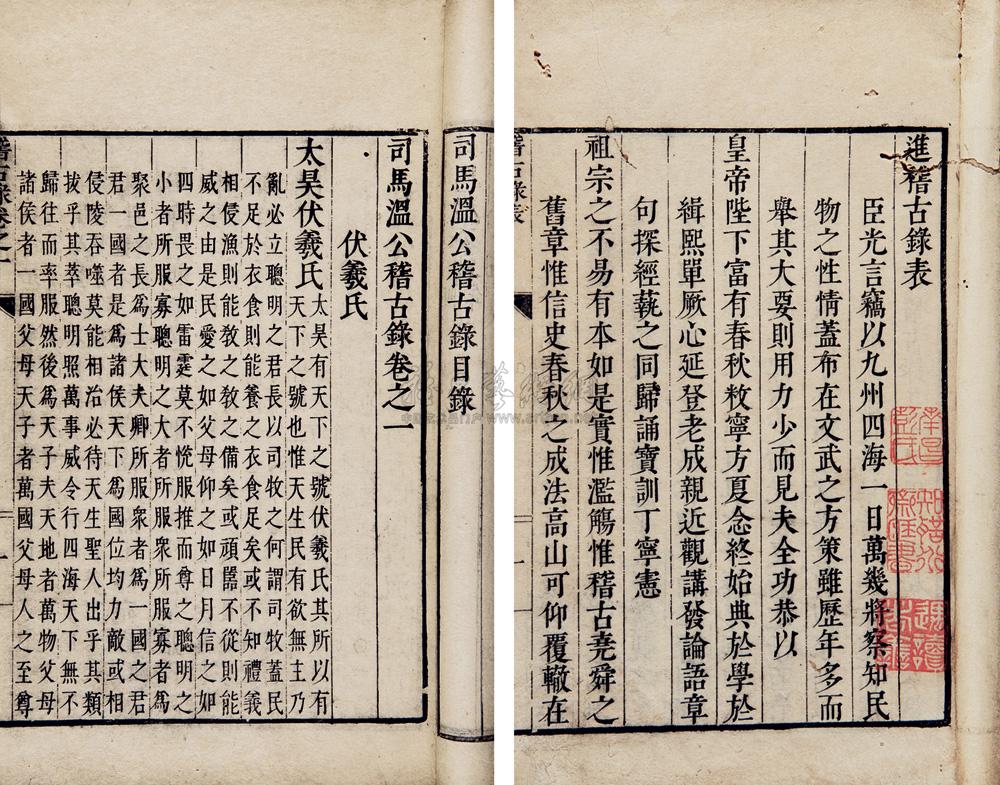 進稽古錄表
臣光言竊以九州四海一日萬幾將察知民
物之性情蓋布在文武之方策雖歷年多而
舉其大要則用力少而見夫全功恭以
皇帝陛下富有春秋敉寧方夏念終始典於學於
緝熙單厥心延登老成親近觀講發論語章
句探經藝之同歸誦寶訓丁寧憲
祖宗之不易有本如是實惟濫觴惟稽古堯舜之
舊章惟信史春秋之成法高山可仰覆轍在
稽古錄表
司馬溫公稽古錄目錄
司馬溫公稽古錄卷之一
伏羲氏
太昊伏羲氏太昊有天下之號伏羲氏其所以有
天下之號也惟天生民有欲無主乃
亂必立聰明之君長以司牧之何謂司牧蓋民
不足於衣食則能養之衣食足矣或不知禮義
相侵漁則能敎之敎之備矣或頑嚚不從則能
威之由是民愛之如父母仰之如日月信之如
四時畏之如雷霆莫不悅服推而尊之聰明之
小者所服寡聰明之大者所服衆所服寡者爲
聚邑之長爲士大夫卿所服衆者爲一國之君
君一國者是爲諸侯天下爲國位均力敵或相
侵陵吞噬莫能相治必待天生聖人出乎其類
拔乎其萃聰明照萬事威令行四海天下無不
歸往而率服然後爲天子夫天地者萬物父母
諸侯者一國父母天子者萬國父母人之至尊
稽古錄卷之一
一